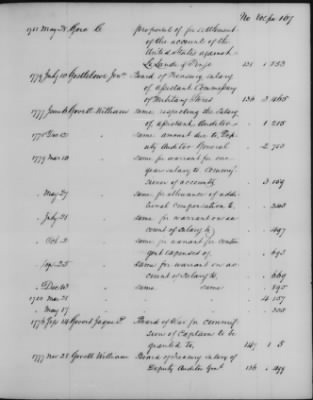 No Vol. Pa 167
1781 May 8 Gora C proposal of for settlement
of the account of the
United States against
136
1779 July 10 Gostelowe Jona. Board of Treasury salary
of assistant Commissary
of Military Stores 136 3 465
1777 June 6 Govett William same respecting the salary
of assistant Auditor 1 218
1778 Dec 12 " same amount due to Dep-
uty Auditor General 2 713
1779 Mar 10 " same for warrant for one
year salary to Commis-
sioner of accounts 3 159
May 27 " same for allowance of addi-
tional compensation to
July 21 " same for warrant on ac-
count of salary to 497
Oct 2 " same for warrant for contin-
gent expenses of 693
Sep 25 " same for warrant on ac-
count of salary to 669
Dec 13 " same same
1780 Mar 21 " 4 157
May 17 "
1776 Sep 14 Govert Board of War for commis-
sion of Captain to be
granted to 147 1 5
1777 Nov 28 Govett William Board of Treasury salary of
Deputy Auditor Genl 136 1